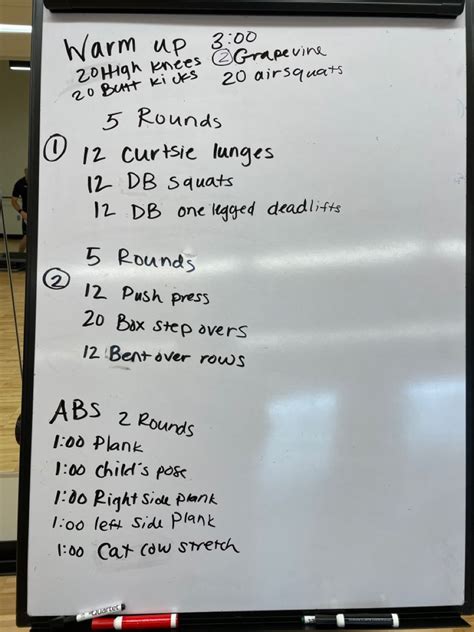 Warm up 3:00
20 High Knees ② Grapevine
20 Butt kicks 20 airsquats
5 Rounds
① 12 curtsie lunges
12 DB squats
12 DB one legged deadlifts
5 Rounds
② 12 Push press
20 Box step overs
12 Bent over rows
ABs 2 Rounds
1:00 Plank
1:00 child's pose
1:00 Right side plank
1:00 left side Plank
1:00 Cat cow stretch
Quartet